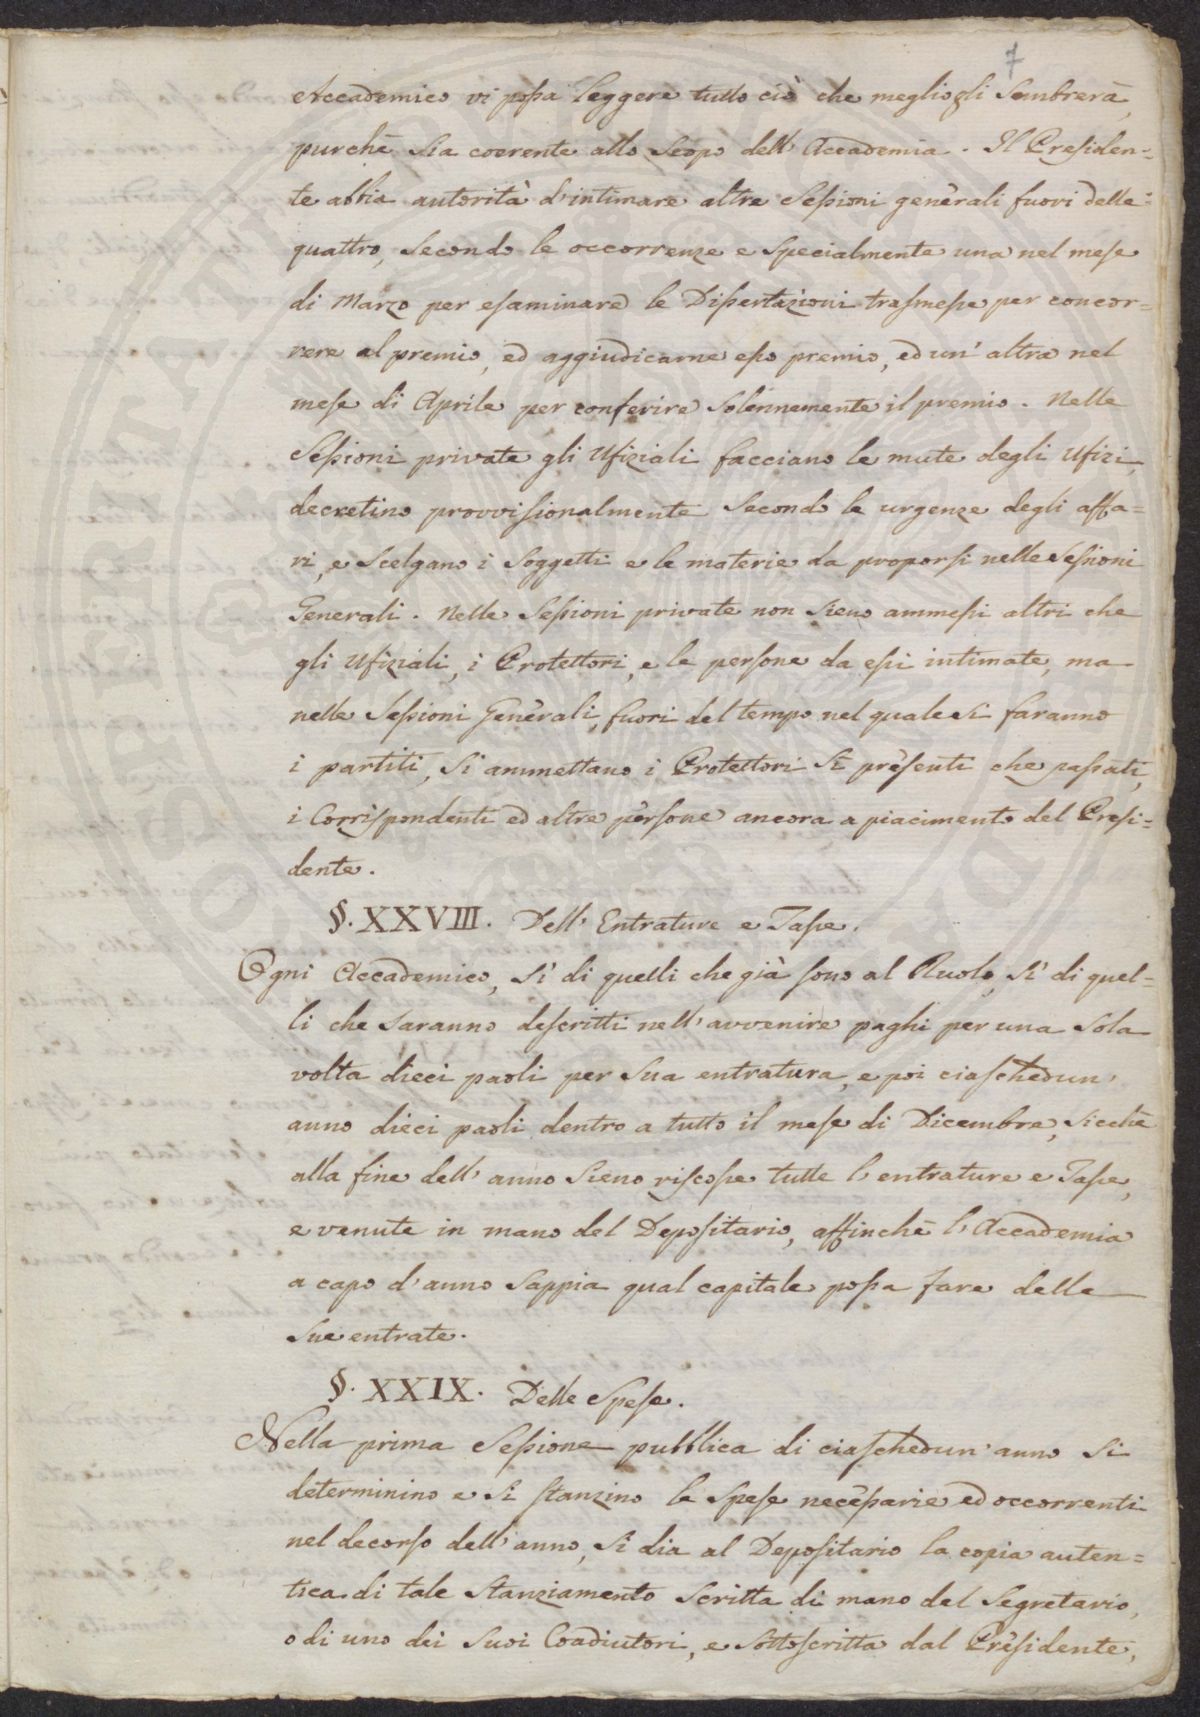 7
Accademico vi possa leggere tutto ciò che megliogli Sembrerà,
purchè Sia coerente allo Scopo dell'Accademia. Il Presiden=
te abbia autorità d'intimare altre Sessioni generali fuori delle
quattro, Secondo le occorrenze e Specialmente una nel mese
di Marzo per esaminare le Dissertazioni trasmesse per concor=
rere al premio, ed aggiudicarne esso premio, ed un'altra nel
mese di Aprile per conferire Solennemente il premio. Nelle
Sessioni private gli Ufiziali facciano le mute degli Ufizi,
decretino provvisionalmente Secondo le urgenze degli affa=
ri, e Scelgano i Soggetti e le materie da proporsi nelle Sessioni
Generali. Nelle Sessioni private non Sieno ammessi altri che
gli Ufiziali, i Protettori, e le persone da essi intimate, ma
nelle Sessioni Generali, fuori del tempo nel quale Si faranno
i partiti, Si ammettano i Protettori Sì presenti che passati,
i Corrispondenti ed altre persone ancora a piacimento del Presi=
dente.
§. XXVIII. Dell'Entrature e Tasse.
Ogni Accademico, Sì di quelli che già sono al Ruolo, Sì di quel=
li che Saranno descritti nell'avvenire paghi per una Sola
volta dieci paoli per Sua entratura, e poi ciaschedun'
anno dieci paoli dentro a tutto il mese di Dicembre, Sicchè
alla fine dell'anno Sieno riscosse tutte l'entrature e Tasse,
e venute in mano del Depositario, affinchè l'Accademia
a capo d'anno Sappia qual capitale possa fare delle
Sue entrate.
§. XXIX. Delle Spese.
Nella prima Sessione pubblica di ciaschedun'anno Si
determinino e Si stanzino le Spese necessarie ed occorrenti
nel decorso dell'anno, Si dia al Depositario la copia auten=
tica di tale Stanziamento Scritta di mano del Segretario,
o di uno dei Suoi Coadiutori, e Sottoscritta dal Presidente,